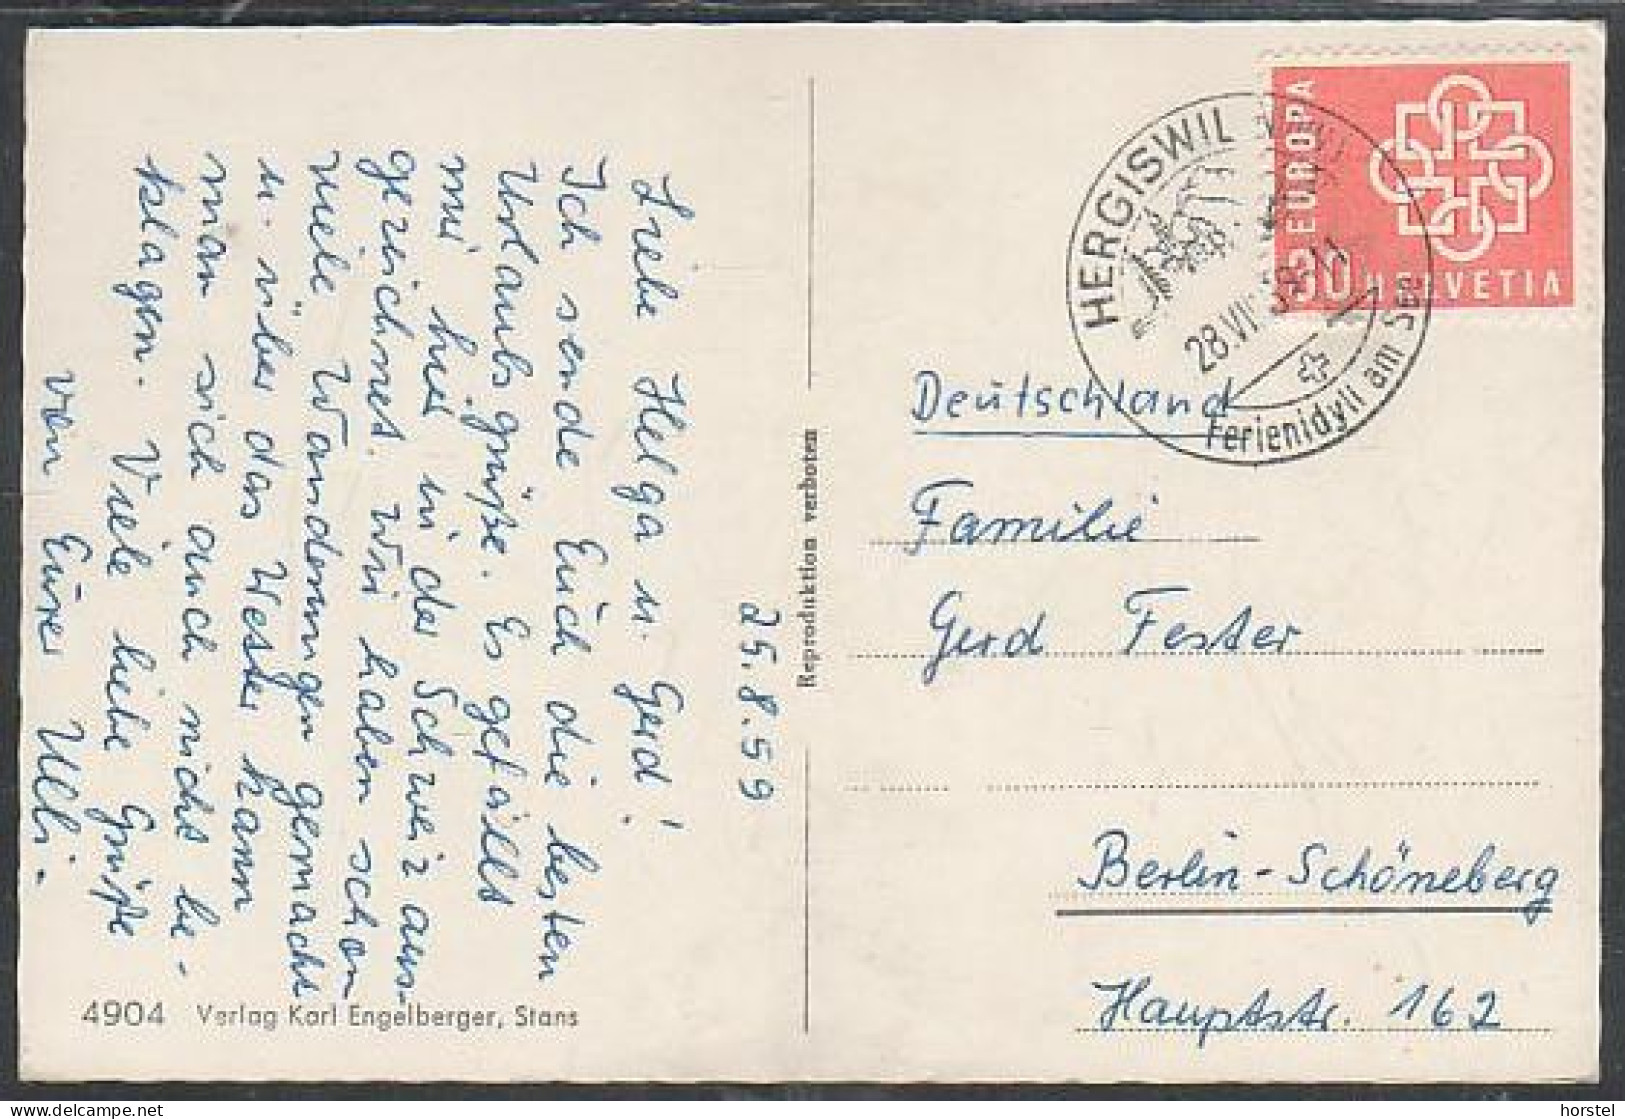 25.8.59
Liebe Helga u. Gerd!
Ich sende Euch die besten
Urlaubsgrüße. Es gefällt
mir hier in der Schweiz aus-
gezeichnet. Wir haben schon
viele Wanderungen gemacht
u. über das Wetter kann
man sich auch nicht be-
klagen. Viele liebe Grüße
von Eurer Ulli.
4904 Verlag Karl Engelberger, Stans
Reproduktion verboten
HERGISWIL
28.VIII.59-11
Ferienidyll am See
EUROPA
30 HELVETIA
Deutschland
Familie
Gerd Fester
Berlin-Schöneberg
Hauptstr. 162
horstel